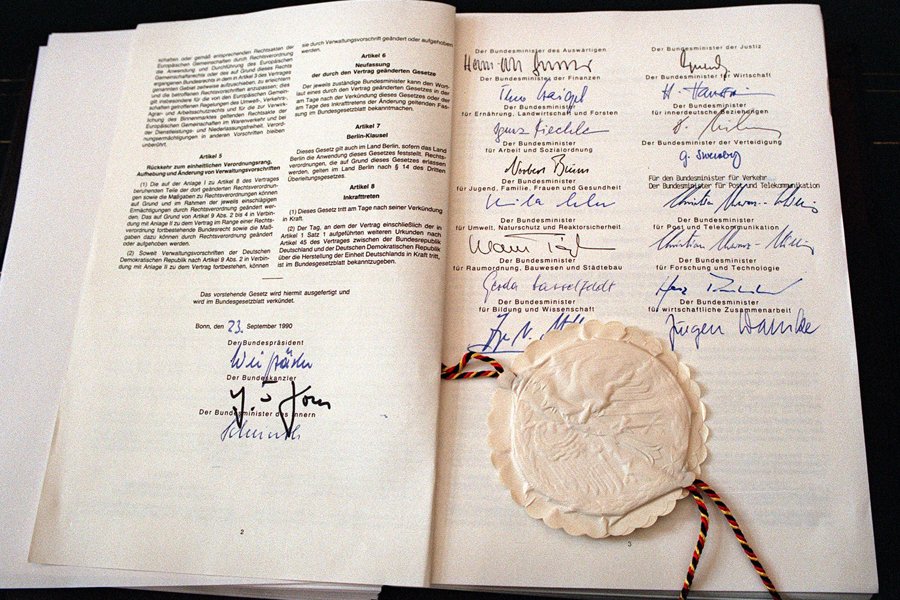 schaften oder gemäß entsprechenden Rechtsakten der
Europäischen Gemeinschaften oder auf Grund dieses Rechts
gangenen Bestimmungen
genannten Gebiet zeitweise außer Anwendung
und die betroffenen Rechtsvorschriften anzupassen; dies
gilt insbesondere für die von den Europäischen Gemein-
schaften geregelten Regelungen des Umwelt-, Verkehrs-,
Agrar- und Arbeitsschutzrechts und für die zur Verwirk-
lichung des Binnenmarktes geltenden Rechtsakte der
Europäischen Gemeinschaften im Warenverkehr und bei
der Dienstleistungs- und Niederlassungsfreiheit. Verord-
nungsermächtigungen in anderen Vorschriften bleiben
unberührt.
Artikel 5
Rückkehr zum einheitlichen Verordnungsrang,
Aufhebung und Änderung von Verwaltungsvorschriften
(1) Die auf der Anlage I zu Artikel 8 des Vertrages
beruhenden Teile der dort geänderten Rechtsverordnun-
gen sowie die Maßgaben zu Rechtsverordnungen können
auf Grund und im Rahmen der jeweils einschlägigen
Ermächtigungen durch Rechtsverordnung geändert wer-
den. Das auf Grund von Artikel 9 Abs. 2 bis 4 in Verbin-
dung mit Anlage II zu dem Vertrag im Range einer Rechts-
verordnung fortbestehende Bundesrecht sowie die Maß-
gaben dazu können durch Rechtsverordnung geändert
oder aufgehoben werden.
(2) Soweit Verwaltungsvorschriften der Deutschen
Demokratischen Republik nach Artikel 9 Abs. 2 in Verbin-
dung mit Anlage II zu dem Vertrag fortbestehen, können
sie durch Verwaltungsvorschrift geändert oder aufgehoben
werden.
Artikel 6
Neufassung
der durch den Vertrag geänderten Gesetze
Der jeweils zuständige Bundesminister kann den Wort-
laut eines durch den Vertrag geänderten Gesetzes in der
am Tage nach der Verkündung dieses Gesetzes oder der
am Tage des Inkrafttretens der Änderung geltenden Fas-
sung im Bundesgesetzblatt bekanntmachen.
Artikel 7
Berlin-Klausel
Dieses Gesetz gilt auch im Land Berlin, sofern das Land
Berlin die Anwendung dieses Gesetzes feststellt. Rechts-
verordnungen, die auf Grund dieses Gesetzes erlassen
werden, gelten im Land Berlin nach § 14 des Dritten
Überleitungsgesetzes.
Artikel 8
Inkrafttreten
(1) Dieses Gesetz tritt am Tage nach seiner Verkündung
in Kraft.
(2) Der Tag, an dem der Vertrag einschließlich der in
Artikel 1 Satz 1 aufgeführten weiteren Urkunden nach
Artikel 45 des Vertrages zwischen der Bundesrepublik
Deutschland und der Deutschen Demokratischen Republik
über die Herstellung der Einheit Deutschlands in Kraft tritt,
ist im Bundesgesetzblatt bekanntzugeben.
Das vorstehende Gesetz wird hiermit ausgefertigt und
wird im Bundesgesetzblatt verkündet.
Bonn, den 23. September 1990
Der Bundespräsident
Der Bundeskanzler
Der Bundesminister des Innern
2
Der Bundesminister des Auswärtigen
Der Bundesminister der Finanzen
Theo Waigel
Der Bundesminister
für Ernährung, Landwirtschaft und Forsten
Ignaz Kiechle
Der Bundesminister
für Arbeit und Sozialordnung
Norbert Blüm
Der Bundesminister
für Jugend, Familie, Frauen und Gesundheit
Der Bundesminister
für Umwelt, Naturschutz und Reaktorsicherheit
Der Bundesminister
für Raumordnung, Bauwesen und Städtebau
Gerda Hasselfeldt
Der Bundesminister
für Bildung und Wissenschaft
Der Bundesminister der Justiz
Der Bundesminister für Wirtschaft
Der Bundesminister
für innerdeutsche Beziehungen
Der Bundesminister der Verteidigung
Für den Bundesminister für Verkehr
Der Bundesminister für Post und Telekommunikation
Der Bundesminister
für Post und Telekommunikation
Der Bundesminister
für Forschung und Technologie
Der Bundesminister
für wirtschaftliche Zusammenarbeit
Jürgen Warnke
3